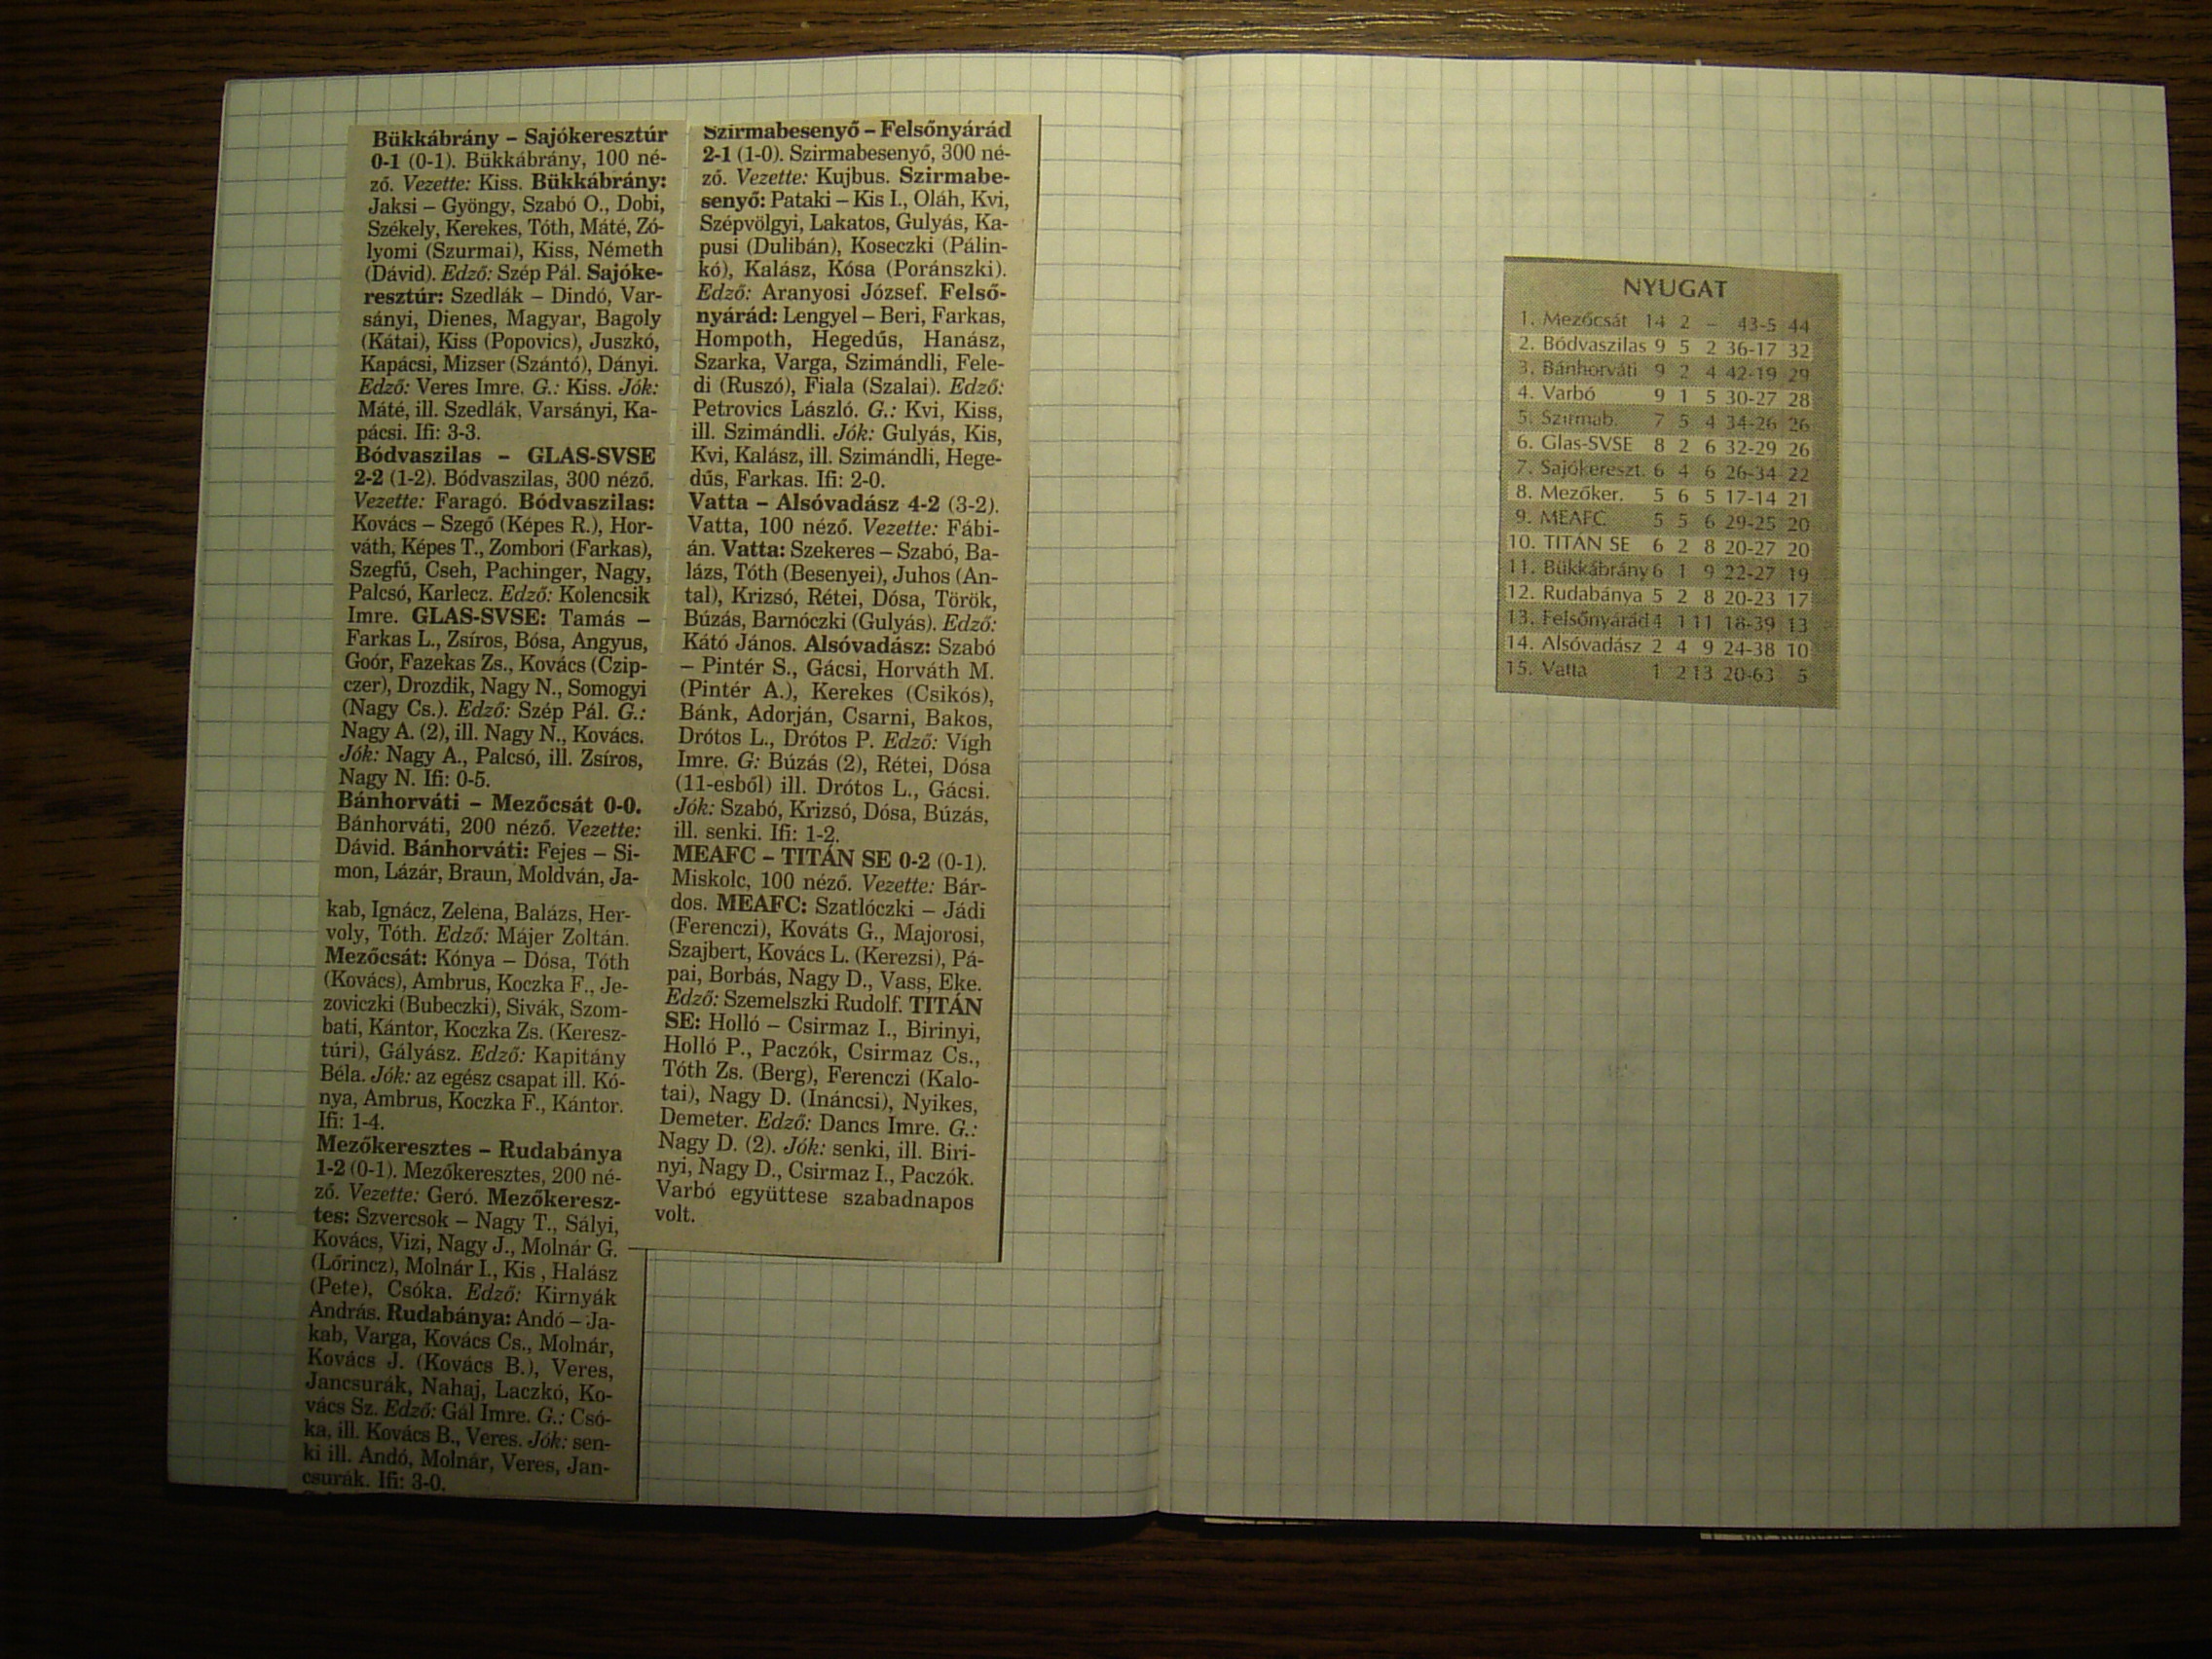 Bükkábrány – Sajókeresztúr
0-1 (0-1). Bükkábrány, 100 né-
ző. Vezette: Kiss. Bükkábrány:
Jaksi – Gyöngy, Szabó O., Dobi,
Székely, Kerekes, Tóth, Máté, Zó-
lyomi (Szurmai), Kiss, Németh
(Dávid). Edző: Szép Pál. Sajóke-
resztúr: Szedlák – Dindó, Var-
sányi, Dienes, Magyar, Bagoly
(Kátai), Kiss (Popovics), Juszkó,
Kapácsi, Mizser (Szántó), Dányi.
Edző: Veres Imre. G.: Kiss. Jók:
Máté, ill. Szedlák, Varsányi, Ka-
pácsi. Ifi: 3-3.
Bódvaszilas – GLAS-SVSE
2-2 (1-2). Bódvaszilas, 300 néző.
Vezette: Faragó. Bódvaszilas:
Kovács – Szegő (Képes R.), Hor-
váth, Képes T., Zombori (Farkas),
Szegfű, Cseh, Pachinger, Nagy,
Palcsó, Karlecz. Edző: Kolencsik
Imre. GLAS-SVSE: Tamás –
Farkas L., Zsíros, Bósa, Angyus,
Goór, Fazekas Zs., Kovács (Czip-
czer), Drozdik, Nagy N., Somogyi
(Nagy Cs.). Edző: Szép Pál. G.:
Nagy A. (2), ill. Nagy N., Kovács.
Jók: Nagy A., Palcsó, ill. Zsíros,
Nagy N. Ifi: 0-5.
Bánhorváti – Mezőcsát 0-0.
Bánhorváti, 200 néző. Vezette:
Dávid. Bánhorváti: Fejes – Si-
mon, Lázár, Braun, Moldván, Ja-
kab, Ignácz, Zelena, Balázs, Her-
voly, Tóth. Edző: Májer Zoltán.
Mezőcsát: Kónya – Dósa, Tóth
(Kovács), Ambrus, Koczka F., Je-
zoviczki (Bubeczki), Sivák, Szom-
bati, Kántor, Koczka Zs. (Keresz-
túri), Gályász. Edző: Kapitány
Béla. Jók: az egész csapat ill. Kó-
nya, Ambrus, Koczka F., Kántor.
Ifi: 1-4.
Mezőkeresztes – Rudabánya
1-2 (0-1). Mezőkeresztes, 200 né-
ző. Vezette: Geró. Mezőkeresz-
tes: Szvercsok – Nagy T., Sályi,
Kovács, Vizi, Nagy J., Molnár G.
(Lőrincz), Molnár I., Kis , Halász
(Pete), Csóka. Edző: Kirnyák
András. Rudabánya: Andó – Ja-
kab, Varga, Kovács Cs., Molnár,
Kovács J. (Kovács B.), Veres,
Jancsurák, Nahaj, Laczkó, Ko-
vács Sz. Edző: Gál Imre. G.: Csó-
ka, ill. Kovács B., Veres. Jók: sen-
ki ill. Andó, Molnár, Veres, Jan-
csurák. Ifi: 3-0.
Szirmabesenyő – Felsőnyárád
2-1 (1-0). Szirmabesenyő, 300 né-
ző. Vezette: Kujbus. Szirmabe-
senyő: Pataki – Kis I., Oláh, Kvi,
Szépvölgyi, Lakatos, Gulyás, Ka-
pusi (Dulibán), Koseczki (Pálin-
kó), Kalász, Kósa (Poránszki).
Edző: Aranyosi József. Felső-
nyárád: Lengyel – Beri, Farkas,
Hompoth, Hegedűs, Hanász,
Szarka, Varga, Szimándli, Fele-
di (Ruszó), Fiala (Szalai). Edző:
Petrovics László. G.: Kvi, Kiss,
ill. Szimándli. Jók: Gulyás, Kis,
Kvi, Kalász, ill. Szimándli, Hege-
dűs, Farkas. Ifi: 2-0.
Vatta – Alsóvadász 4-2 (3-2).
Vatta, 100 néző. Vezette: Fábi-
án. Vatta: Szekeres – Szabó, Ba-
lázs, Tóth (Besenyei), Juhos (An-
tal), Krizsó, Rétei, Dósa, Török,
Búzás, Barnóczki (Gulyás). Edző:
Kátó János. Alsóvadász: Szabó
– Pintér S., Gácsi, Horváth M.
(Pintér A.), Kerekes (Csikós),
Bánk, Adorján, Csarni, Bakos,
Drótos L., Drótos P. Edző: Vígh
Imre. G: Búzás (2), Rétei, Dósa
(11-esből) ill. Drótos L., Gácsi.
Jók: Szabó, Krizsó, Dósa, Búzás,
ill. senki. Ifi: 1-2.
MEAFC – TITÁN SE 0-2 (0-1).
Miskolc, 100 néző. Vezette: Bár-
dos. MEAFC: Szatlóczki – Jádi
(Ferenczi), Kováts G., Majorosi,
Szajbert, Kovács L. (Kerezsi), Pá-
pai, Borbás, Nagy D., Vass, Eke.
Edző: Szemelszki Rudolf. TITÁN
SE: Holló – Csirmaz I., Birinyi,
Holló P., Paczók, Csirmaz Cs.,
Tóth Zs. (Berg), Ferenczi (Kalo-
tai), Nagy D. (Ináncsi), Nyikes,
Demeter. Edző: Dancs Imre. G.:
Nagy D. (2). Jók: senki, ill. Biri-
nyi, Nagy D., Csirmaz I., Paczók.
Varbó együttese szabadnapos
volt.
NYUGAT
1. Mezőcsát 14 2 – 43-5 44
2. Bódvaszilas 9 5 2 36-17 32
3. Bánhorváti 9 2 4 42-19 29
4. Varbó 9 1 5 30-27 28
5. Szirmab. 7 5 4 34-26 26
6. Glas-SVSE 8 2 6 32-29 26
7. Sajókereszt. 6 4 6 26-34 22
8. Mezőker. 5 6 5 17-14 21
9. MEAFC 5 5 6 29-25 20
10. TITÁN SE 6 2 8 20-27 20
11. Bükkábrány 6 1 9 22-27 19
12. Rudabánya 5 2 8 20-23 17
13. Felsőnyárád 4 1 11 18-39 13
14. Alsóvadász 2 4 9 24-38 10
15. Vatta 1 2 13 20-63 5